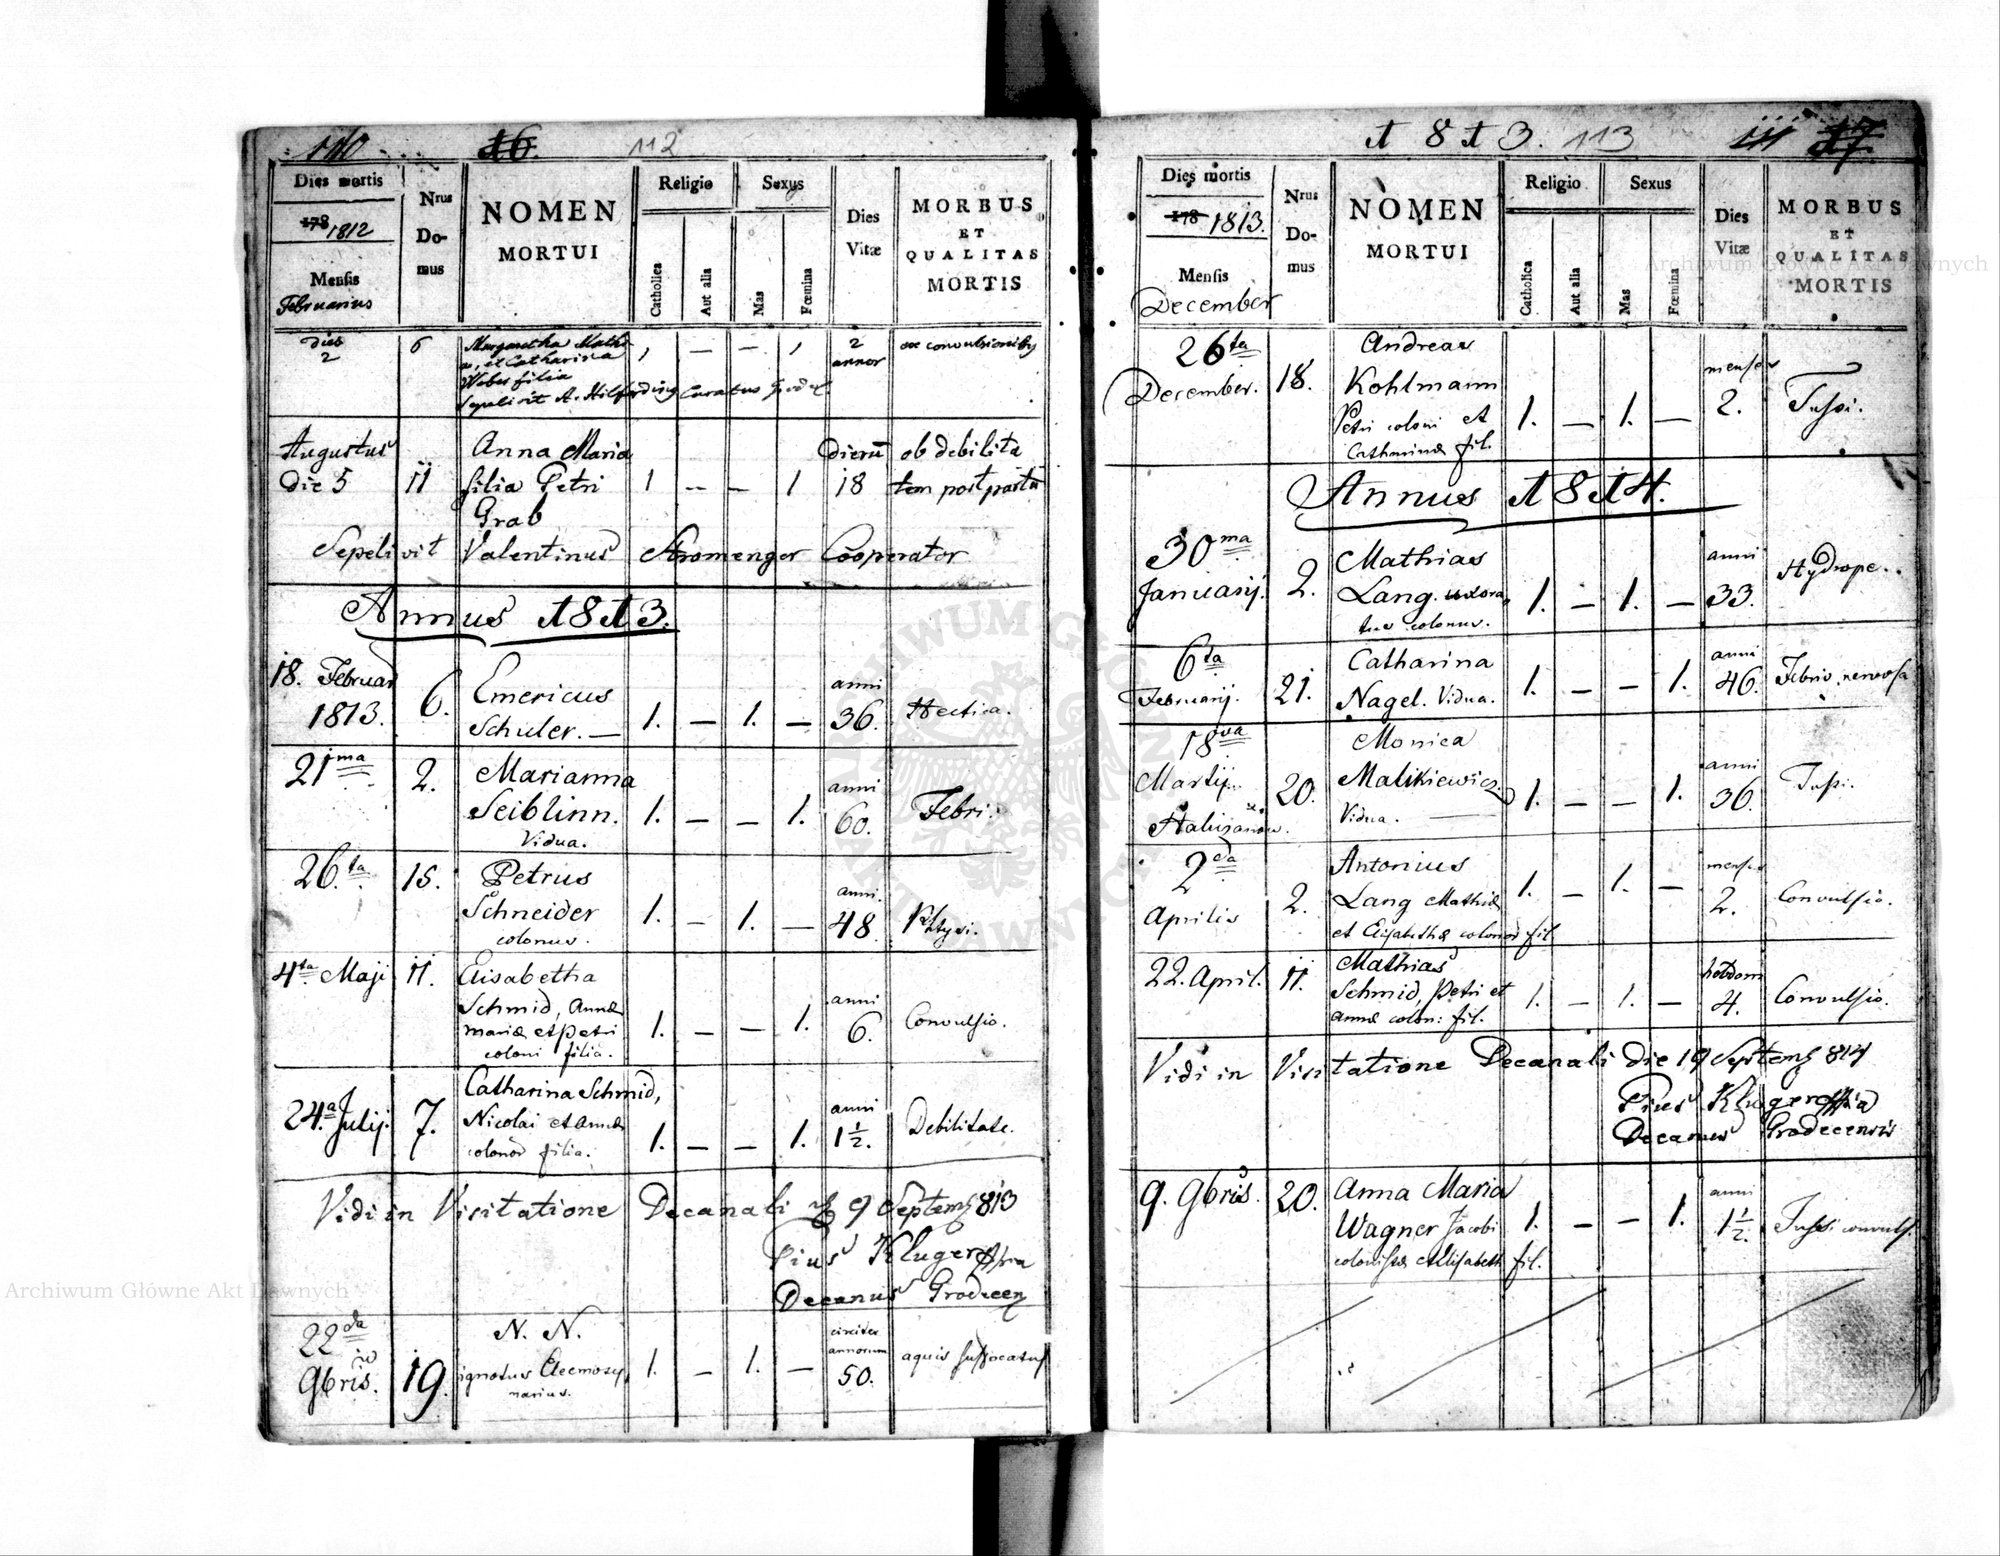 110
16.
112
Dies mortis
178 1812
Mensis
Februarius
Nrus
Do-
mus
NOMEN
MORTUI
Religio
Catholica
Aut alia
Sexus
Mas
Fœmina
Dies
Vitæ
MORBUS
ET
QUALITAS
MORTIS
dies
2
6
Margaretha Mathi
æ, et Catharina
Weber filia
1 — — 1
2
annor
ex convulsionibus
Sepelivit A. Hilferding Curatus
Augustus
die 5
11
Anna Maria
filia Petri
Grab
1 — — 1
dierū
18
ob debilita
tem post partū
Sepelivit Valentinus Stromenger Cooperator
Annus 1813.
18. Februar
1813.
6.
Emericus
Schuler. —
1. — 1. —
anni
36.
Hectica.
21ma
2.
Marianna
Seiblinn.
Vidua.
1. — — 1.
anni
60.
Febri.
26.ta
15.
Petrus
Schneider
colonus.
1. — 1. —
anni.
48
4ta Maji
11.
Elisabetha
Schmid, Annæ
Mariæ et Petri
coloni filia.
1. — — 1.
anni
6.
Convulsio.
24.a Julij.
7.
Catharina Schmid,
Nicolai et Annæ
colonor filia.
1. — — 1.
anni
1½.
Debilitate.
Vidi in Visitatione Decanali 9 Septemb 813
Pius Kluger
Decanus Grodecen
22da
9bris.
19.
N. N.
ignotus Eleemosy
narius.
1. — 1. —
circiter
annorum
50.
aquis suffocatus
1813.
113
111
17.
Dies mortis
178 1813.
Mensis
December
Nrus
Do-
mus
NOMEN
MORTUI
Religio
Catholica
Aut alia
Sexus
Mas
Fœmina
Dies
Vitæ
MORBUS
ET
QUALITAS
MORTIS
26ta
December.
18.
Andreas
Kohlmann
Petri coloni et
Catharinæ fil.
1. — 1. —
menses
2.
Tussi.
Annus 1814.
30ma
Januarij.
2.
Mathias
Lang. uxora
tus colonus.
1. — 1. —
anni
33.
Hydrope.
6ta
Februarij.
21.
Catharina
Nagel. Vidua.
1. — — 1.
anni
46.
Febris nervosa
18va
Martij.
20.
Monica
Malikiewicz
Vidua.
1. — — 1.
anni
36.
Tussi.
2da
Aprilis
2.
Antonius
Lang Mathiæ
et Elisabethæ colonor fil
1. — 1. —
menses
2.
Convulsio.
22. April.
11.
Mathias
Schmid, Petri et
Annæ colon: fil.
1. — 1. —
hebdom
4.
Convulsio.
Vidi in Visitatione Decanali die 19 Septemb 814
Pius Kluger
Decanus Grodecensis
9. 9bris.
20.
Anna Maria
Wagner Jacobi
colonistæ et Elisabeth fil.
1. — — 1.
anni
1½.
Tussi convuls.
Archiwum Główne Akt Dawnych
Archiwum Główne Akt Dawnych
ARCHIWUM GŁÓWNE AKT DAWNYCH